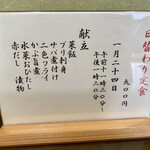 日替わり定食
九〇〇円
一月二十四日
午前十一時三〇分～
午後一時三〇分
献立
菜飯
ブリ刺身
サバ煮付
二色フライ
かぶ旨煮
水菜おひたし
赤だし 漬物